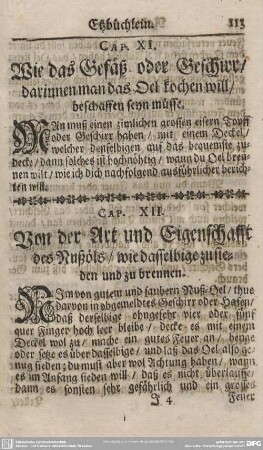 Etzbüchlein. 113
CAP. XI.
Wie das Gefäß oder Geschirr/
darinnen man das Oel kochen will/
beschaffen seyn müsse.
MAn muß einen zimlichen grossen eisern Tropff
oder Geschirr haben/ mit einem Deckel/
welcher denselbigen auf das bequemste zu-
deck/ dann solches ist hochnöhtig/ wann du Oel bren-
nen wilt/ wie ich dich nachfolgend ausführlicher berich-
ten will.
CAP. XII.
Von der Art und Eigenschafft
des Nußöls/ wie dasselbige zu sie-
den und zu brennen.
NIm von gutem und saubern Nuß-Oel/ thue
darvon in obgemeldtes Geschirr oder Hafen/
daß derselbige ohngefehr vier oder fünff
quer Finger hoch leer bleibe/ decke es mit einem
Deckel wol zu/ mache ein gutes Feuer an/ henge
oder setze es über dasselbige/ und laß das Oel also ge-
nug sieden; du must aber wol Achtung haben/ wann
es im Anfang sieden will/ daß es nicht überlauffe/
dann es sonsten sehr gefährlich und ein grosses
J 4 Feuer